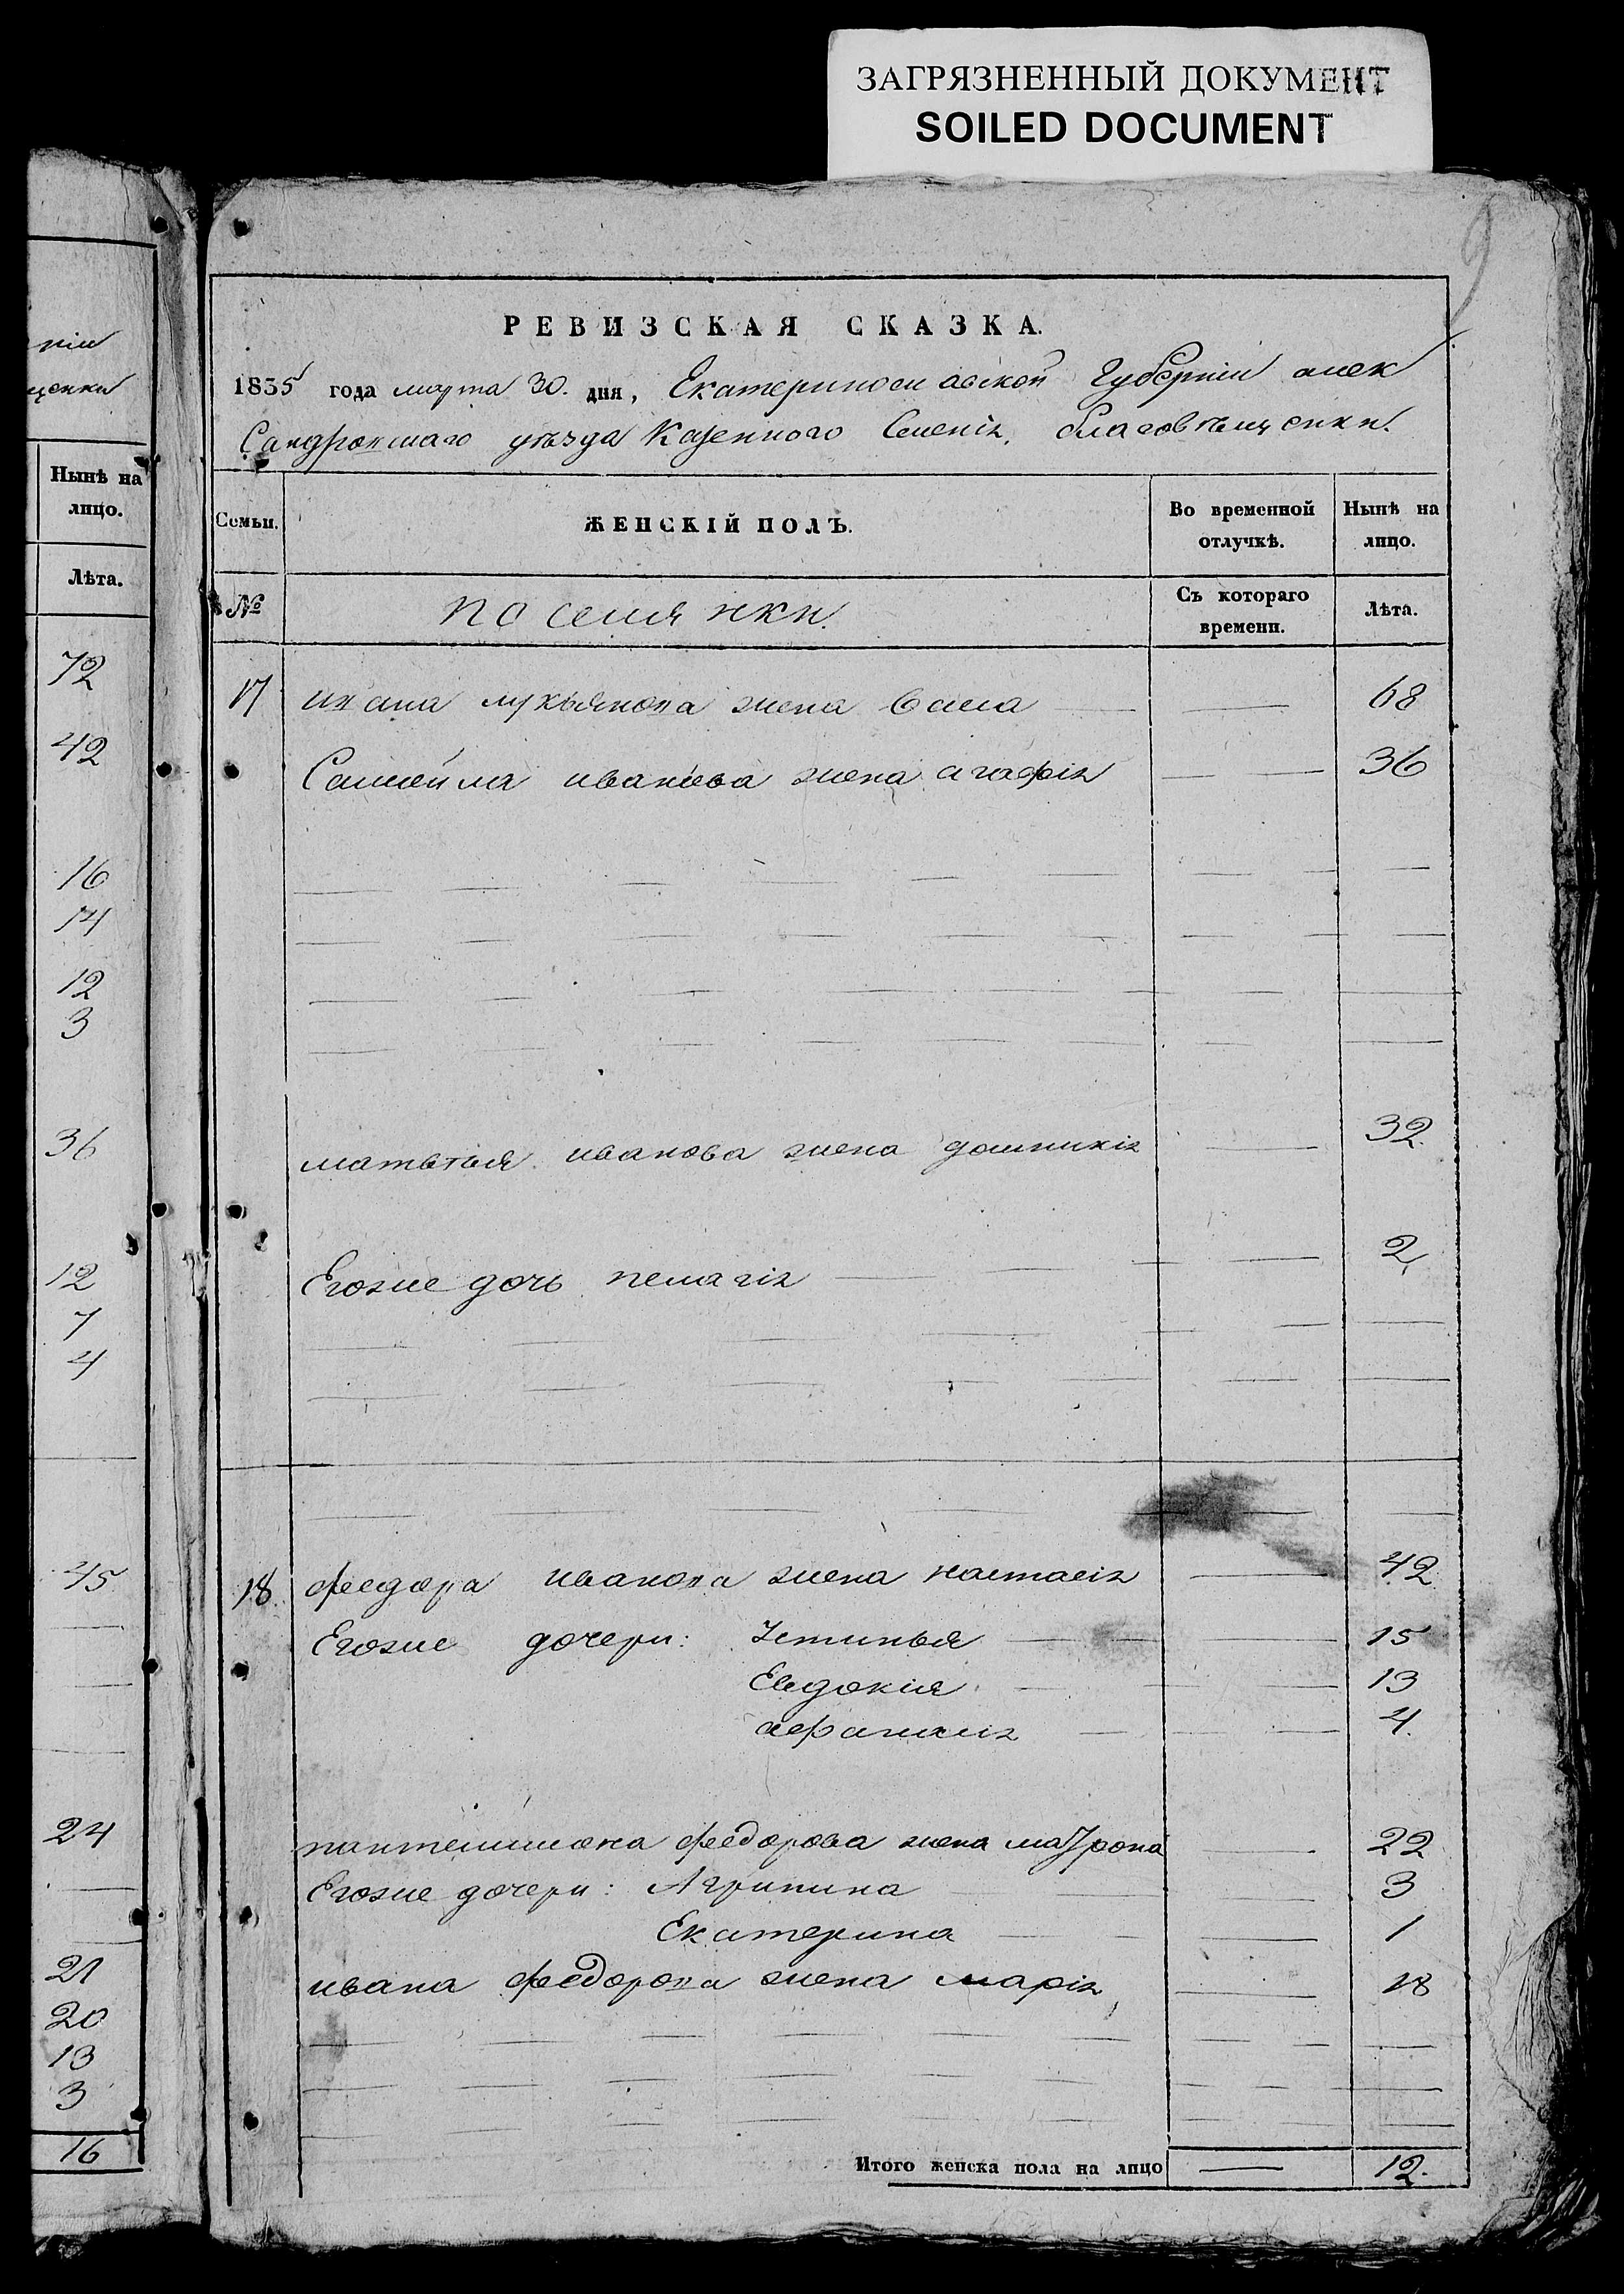 ЗАГРЯЗНЕННЫЙ ДОКУМЕНТ
SOILED DOCUMENT
9
нія
щенки
Нынѣ на
лицо.
Лѣта.
72
42
16
14
12
3
36
12
7
4
45
24
21
20
13
3
16
РЕВИЗСКАЯ СКАЗКА.
1835 года марта 30. дня, Екатеринославской Губерніи алек
Сандровскаго уѣзда Казенного Селенія, благовѣщенки.
Семьи.
ЖЕНСКІЙ ПОЛЪ.
Во временной отлучкѣ.
Нынѣ на лицо.
№
поселянки.
Съ котораго времени.
Лѣта.
17 ивана лукьянова жена 68
Самойла иванова жена агафія 36
матвѣя иванова жена домникія 32.
Егоже дочь пелагія 2
18. федора иванова жена настасія 42
Егоже дочери: Устинья 15
Евдокия 13
афанасия 4.
пантелимона федорова жена матрона 22
Егоже дочери: Агрипина 3
Екатерина 1
ивана федорова жена марія 18
Итого женска пола на лицо 12.